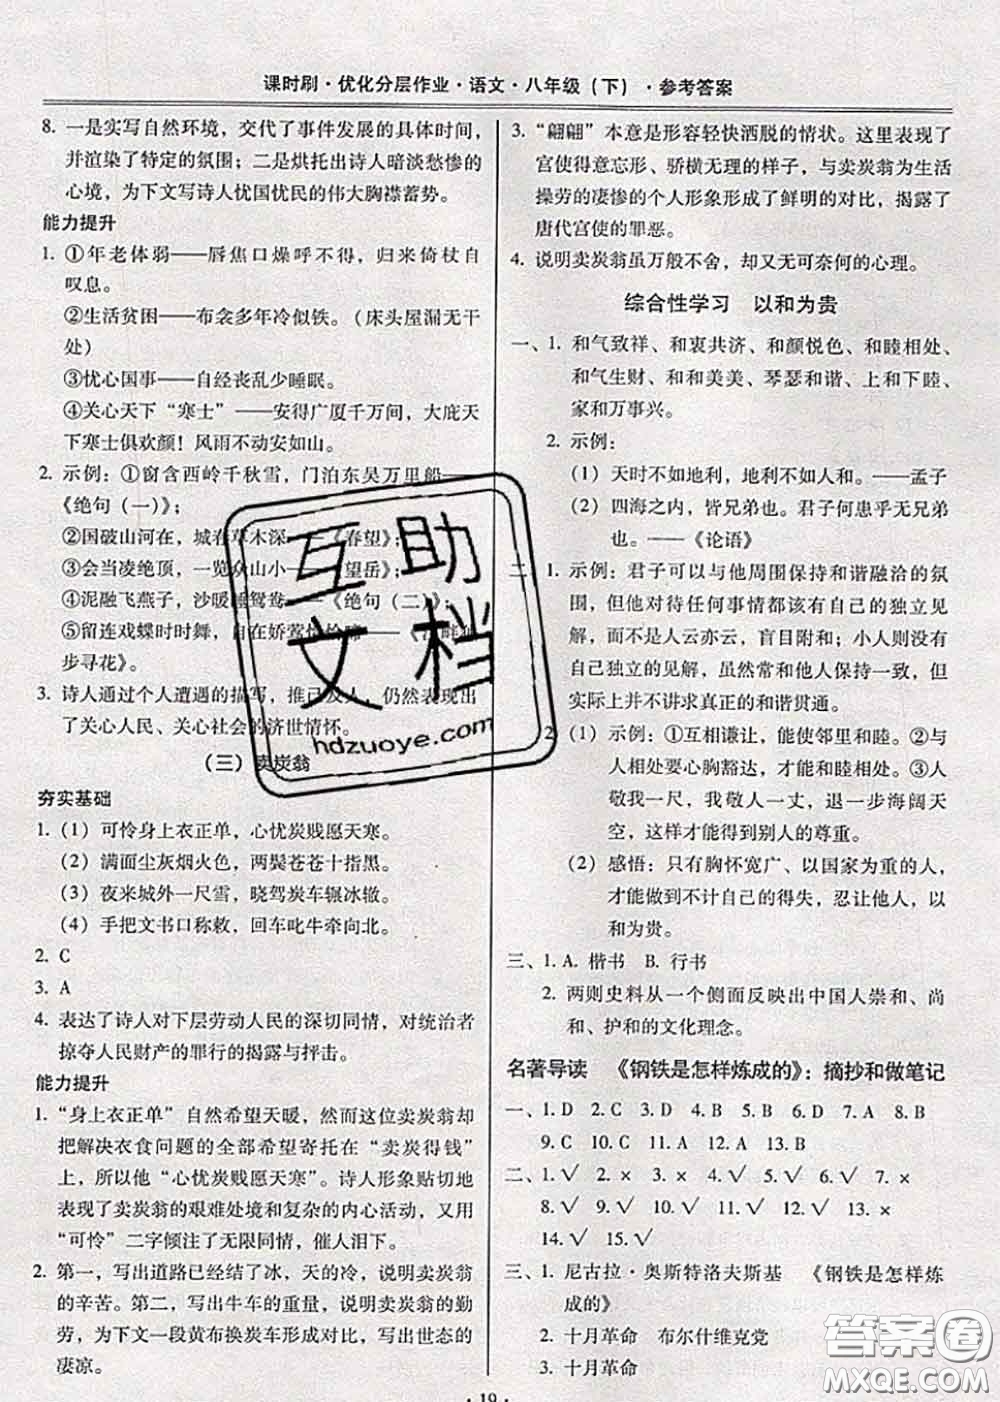 课时刷·优化分层作业·语文·八年级(下)·参考答案
8. 一是实写自然环境，交代了事件发展的具体时间，
并渲染了特定的氛围；二是烘托出诗人暗淡愁惨的
心境，为下文写诗人忧国忧民的伟大胸襟蓄势。
能力提升
1. ①年老体弱——唇焦口燥呼不得，归来倚杖自
叹息。
②生活贫困——布衾多年冷似铁。（床头屋漏无干
处）
③忧心国事——自经丧乱少睡眠。
④关心天下“寒士”——安得广厦千万间，大庇天
下寒士俱欢颜！风雨不动安如山。
2. 示例：①窗含西岭千秋雪，门泊东吴万里船——
《绝句（一）》；
②国破山河在，城春草木深——《春望》；
③会当凌绝顶，一览众山小——《望岳》；
④泥融飞燕子，沙暖睡鸳鸯——《绝句（二）》；
⑤留连戏蝶时时舞，自在娇莺恰恰啼——《江畔独
步寻花》。
3. 诗人通过个人遭遇的描写，推己及人，仍然表现出
了关心人民、关心社会的济世情怀。
（三）卖炭翁
夯实基础
1.（1）可怜身上衣正单，心忧炭贱愿天寒。
（2）满面尘灰烟火色，两鬓苍苍十指黑。
（3）夜来城外一尺雪，晓驾炭车辗冰辙。
（4）手把文书口称敕，回车叱牛牵向北。
2. C
3. A
4. 表达了诗人对下层劳动人民的深切同情，对统治者
掠夺人民财产的罪行的揭露与抨击。
能力提升
1. “身上衣正单”自然希望天暖，然而这位卖炭翁却
把解决衣食问题的全部希望寄托在“卖炭得钱”
上，所以他“心忧炭贱愿天寒”。诗人形象贴切地
表现了卖炭翁的艰难处境和复杂的内心活动，又用
“可怜”二字倾注了无限同情，催人泪下。
2. 第一，写出道路已经结了冰，天的冷，说明卖炭翁
的辛苦。第二，写出牛车的重量，说明卖炭翁的勤
劳，为下文一段黄布换炭车形成对比，写出世态的
凄凉。
3. “翩翩”本意是形容轻快洒脱的情状。这里表现了
宫使得意忘形、骄横无理的样子，与卖炭翁为生活
操劳的凄惨的个人形象形成了鲜明的对比，揭露了
唐代宫使的罪恶。
4. 说明卖炭翁虽万般不舍，却又无可奈何的心理。
综合性学习 以和为贵
一、1. 和气致祥、和衷共济、和颜悦色、和睦相处、
和气生财、和和美美、琴瑟和谐、上和下睦、
家和万事兴。
2. 示例：
（1）天时不如地利，地利不如人和。——孟子
（2）四海之内，皆兄弟也。君子何患乎无兄弟
也。——《论语》
二、1. 示例：君子可以与他周围保持和谐融洽的氛
围，但他对待任何事情都该有自己的独立见
解，而不是人云亦云，盲目附和；小人则没有
自己独立的见解，虽然常和他人保持一致，但
实际上并不讲求真正的和谐贯通。
2.（1）示例：①相互谦让，能使邻里和睦。②与
人相处要心胸豁达，才能和睦相处。③人
敬我一尺，我敬人一丈，退一步海阔天
空，这样才能得到别人的尊重。
（2）感悟：只有胸怀宽广、以国家为重的人，
才能做到不计自己的得失，忍让他人，以
和为贵。
三、1. A. 楷书 B. 行书
2. 两则史料从一个侧面反映出中国人崇和、尚
和、护和的文化理念。
名著导读 《钢铁是怎样炼成的》：摘抄和做笔记
一、1. D 2. C 3. D 4. D 5. C 6. D 7. A 8. B
9. C 10. C 11. A 12. A 13. B
二、1. √ 2. × 3. × 4. √ 5. √ 6. √ 7. ×
8. √ 9. √ 10. √ 11. √ 12. √ 13. ×
14. √ 15. √
三、1. 尼古拉·奥斯特洛夫斯基 《钢铁是怎样炼
成的》
2. 十月革命 布尔什维克党
3. 十月革命
· 19 ·
互助
文档
hdzuoye.com
答案圈
MXQE.COM